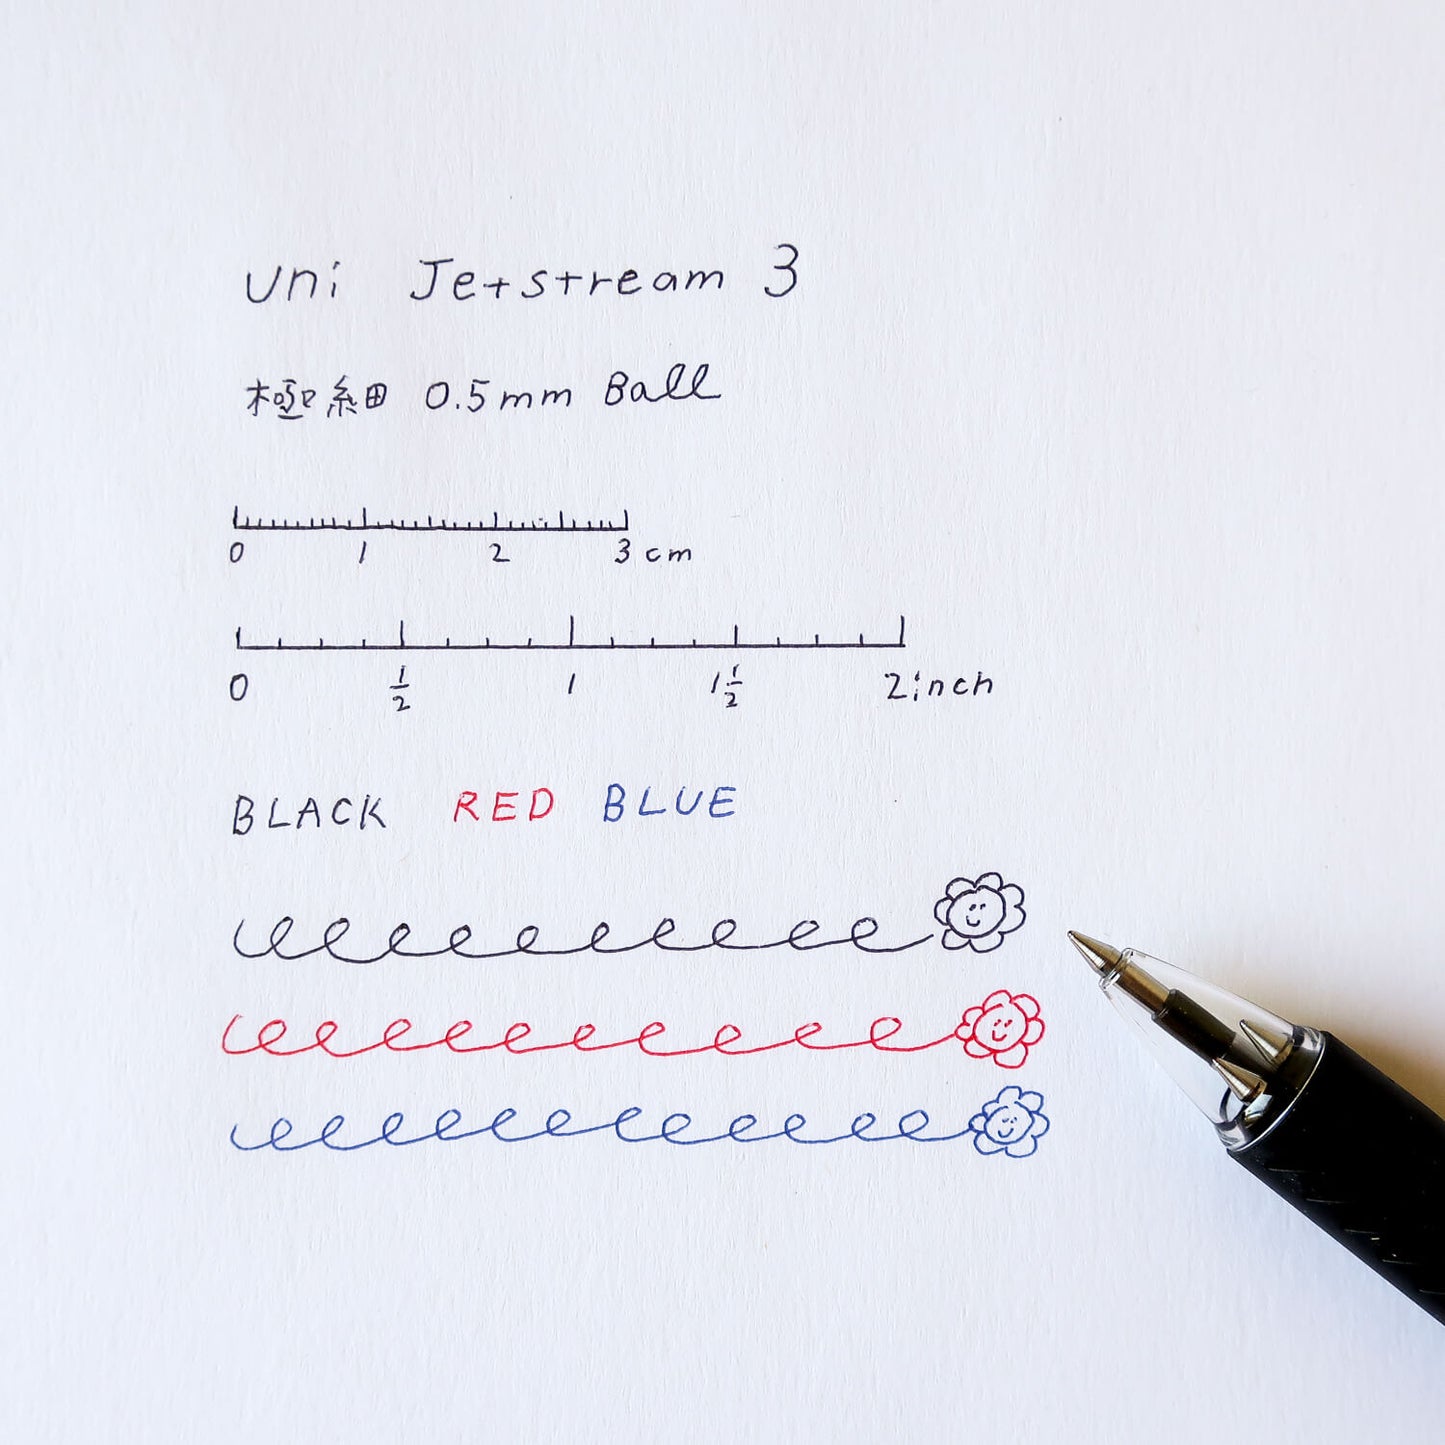 uni Jetstream 3
極細 0.5mm Ball
0 1 2 3 cm
0 1/2 1 1 1/2 2 inch
BLACK RED BLUE